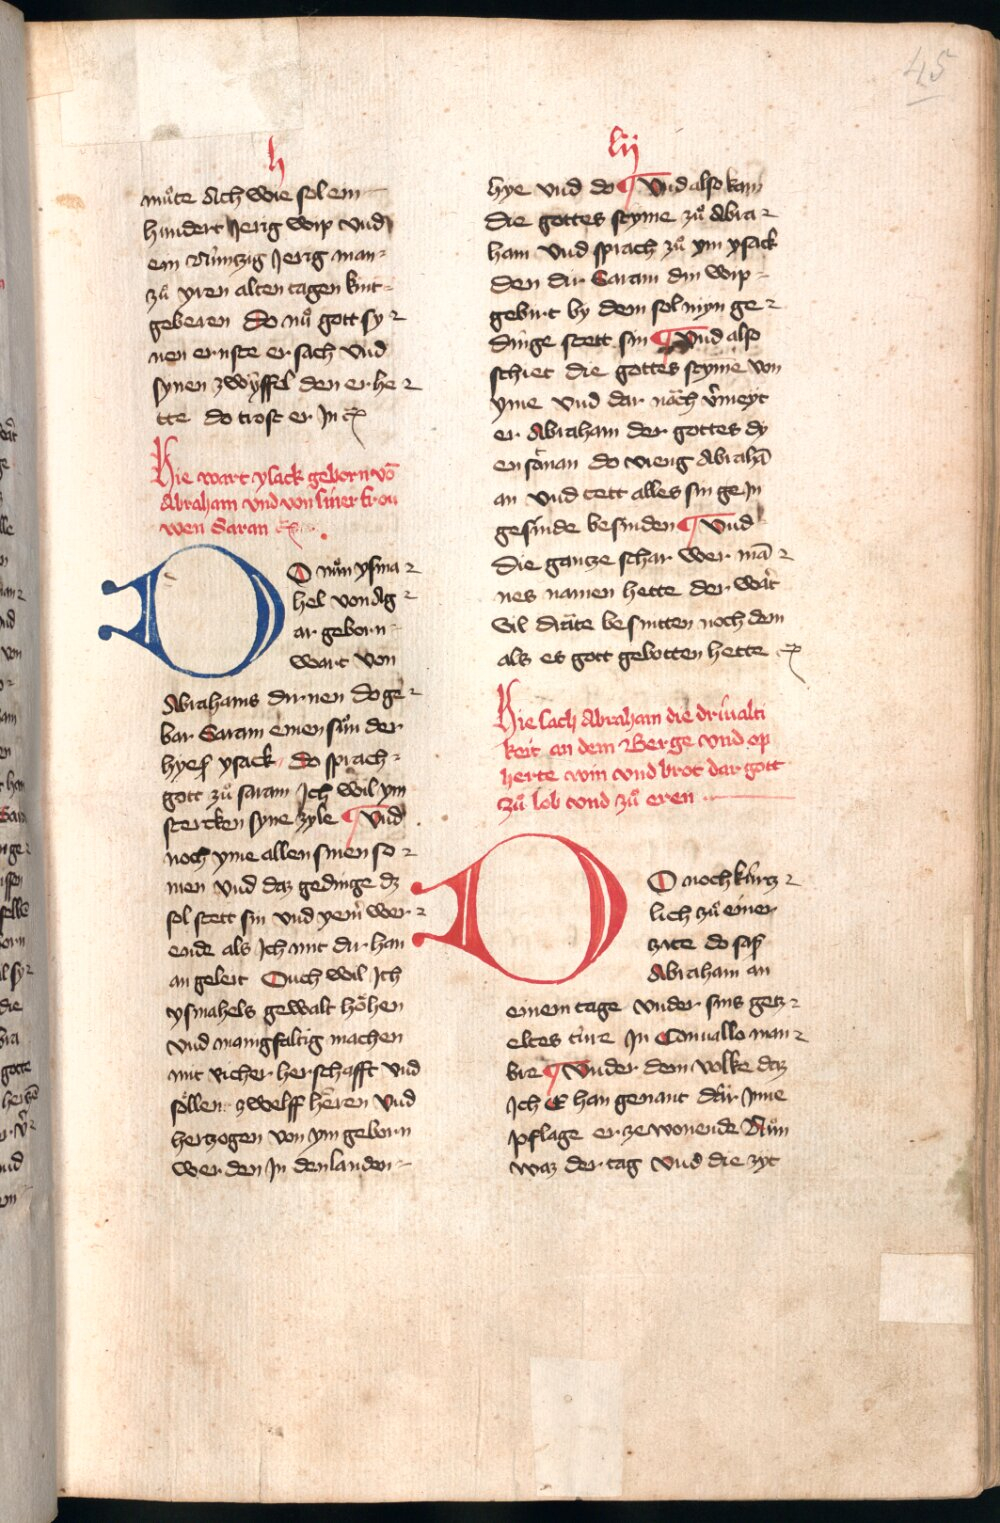 45
h
mu̍te Ach wie sol em
hundert Jerig wip vnd
ein Nu̍nczig Jerig man⸗
zu̍ yren alten tagen kint⸗
geberen do nu̍ gott sy⸗
nen ernste ersach vnd
synen zwyffel den er he⸗
tte do trost er Jn ꝛc
Hie wart ysack geborn vō
Abraham vnd von siner frou
wen Saran ꝛc
DO nu̍n ysma⸗
hel von Ag⸗
ar geborn⸗
wart von
Abrahams dirnen do ge⸗
bar Saram einen su̍n der
hyeß ysack do sprach⸗
gott zu̍ saram Jch wil ym
stercken syne zyle ¶ vnd
noch yme allen sinen so⸗
men vnd daz gedinge dz
sol stett sin vnd yem̄ wer⸗
ende als Jch mit dir han
an geleit Ouch wil Jch
ysmahels gewalt höhen
vnd manigfaltig machen
mit richer herschafft vnd
söllen zwelff heren vnd
herczogen von ym geborn
werden Jn den landen⸗
lij
hye vnd do ¶ vnd also kam
die gottes styme zu̍ Abra⸗
ham vnd sprach zu̍ ym ysack
den dir Saram din wip⸗
gebirt by dem sol myn ge⸗
dinge stett sin ¶ vnd also
schiet die gottes styme von
yme vnd dar nach v̄meyt
er Abraham der gottes dy
en saman do vieng Abrahā
an vnd tett alles sin gein
gesinde besniden ¶ vnd
die gancze schar wer mā⸗
nes namen hette der wart
vil drate besnitten noch dem
als es gott gebotten hette ꝛc
Hie sach Abraham die driualti
keit an dem Berge vnd op
herte win vnd brot dar gott
zu̍ lob vnd zu̍ eren
DO noch kürcz⸗
lich zu̍ einer
zite do saß
Abraham an
einem tage vnder sins gecz⸗
eltes türe Jn Conualle man⸗
bre ¶ vnder dem volke daz
Jch E han genant där Jnne
pflage er ze wonende Nu̍n
waz der tag vnd die zyt